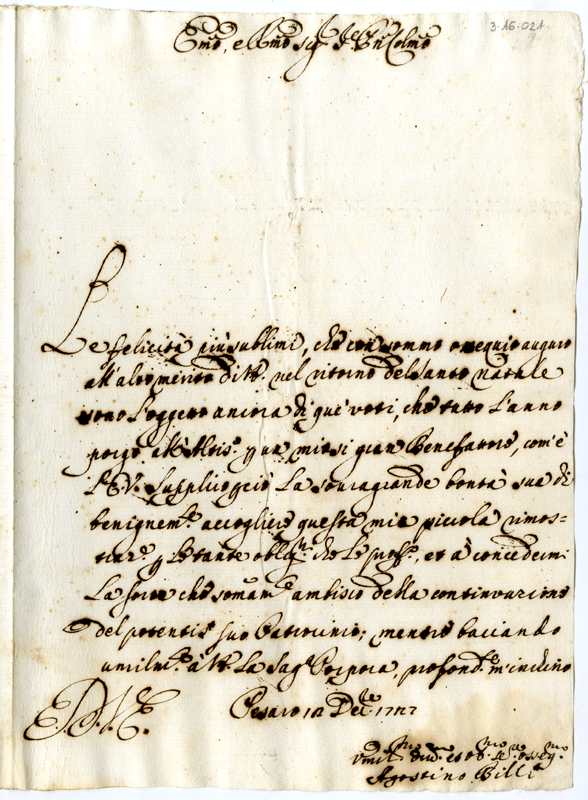 3-16-021
Emo, e Rmo Sig.r Pne Colmo
Le felicità più sublimi, che con sommo ossequio auguro
all'alto merito di V.E. nel ritorno del Santo Natale
sono l'oggetto ancora di que' voti, che tutto l'anno
porgo all'Altis.o p un mio sì gran Benefattore, com'è
l'E.V. Supplico perciò la sovragrande bontà sua di
benignem.te accogliere questa mia piccola rimos=
tranza p le tante obblig.ni che le profes.o, et à concedermi
la sorte che somam.te ambisco della continuazione
del potentis.o suo Patrocinio; mentre baciando
umilm.te à V.E. la Sag.a Porpora, profond.te m'inchino
D.V.E.
Pesaro Dec.bre 1727
Vmil.mo div.mo et ob.mo Se.re osseq.mo
Agostino Billi